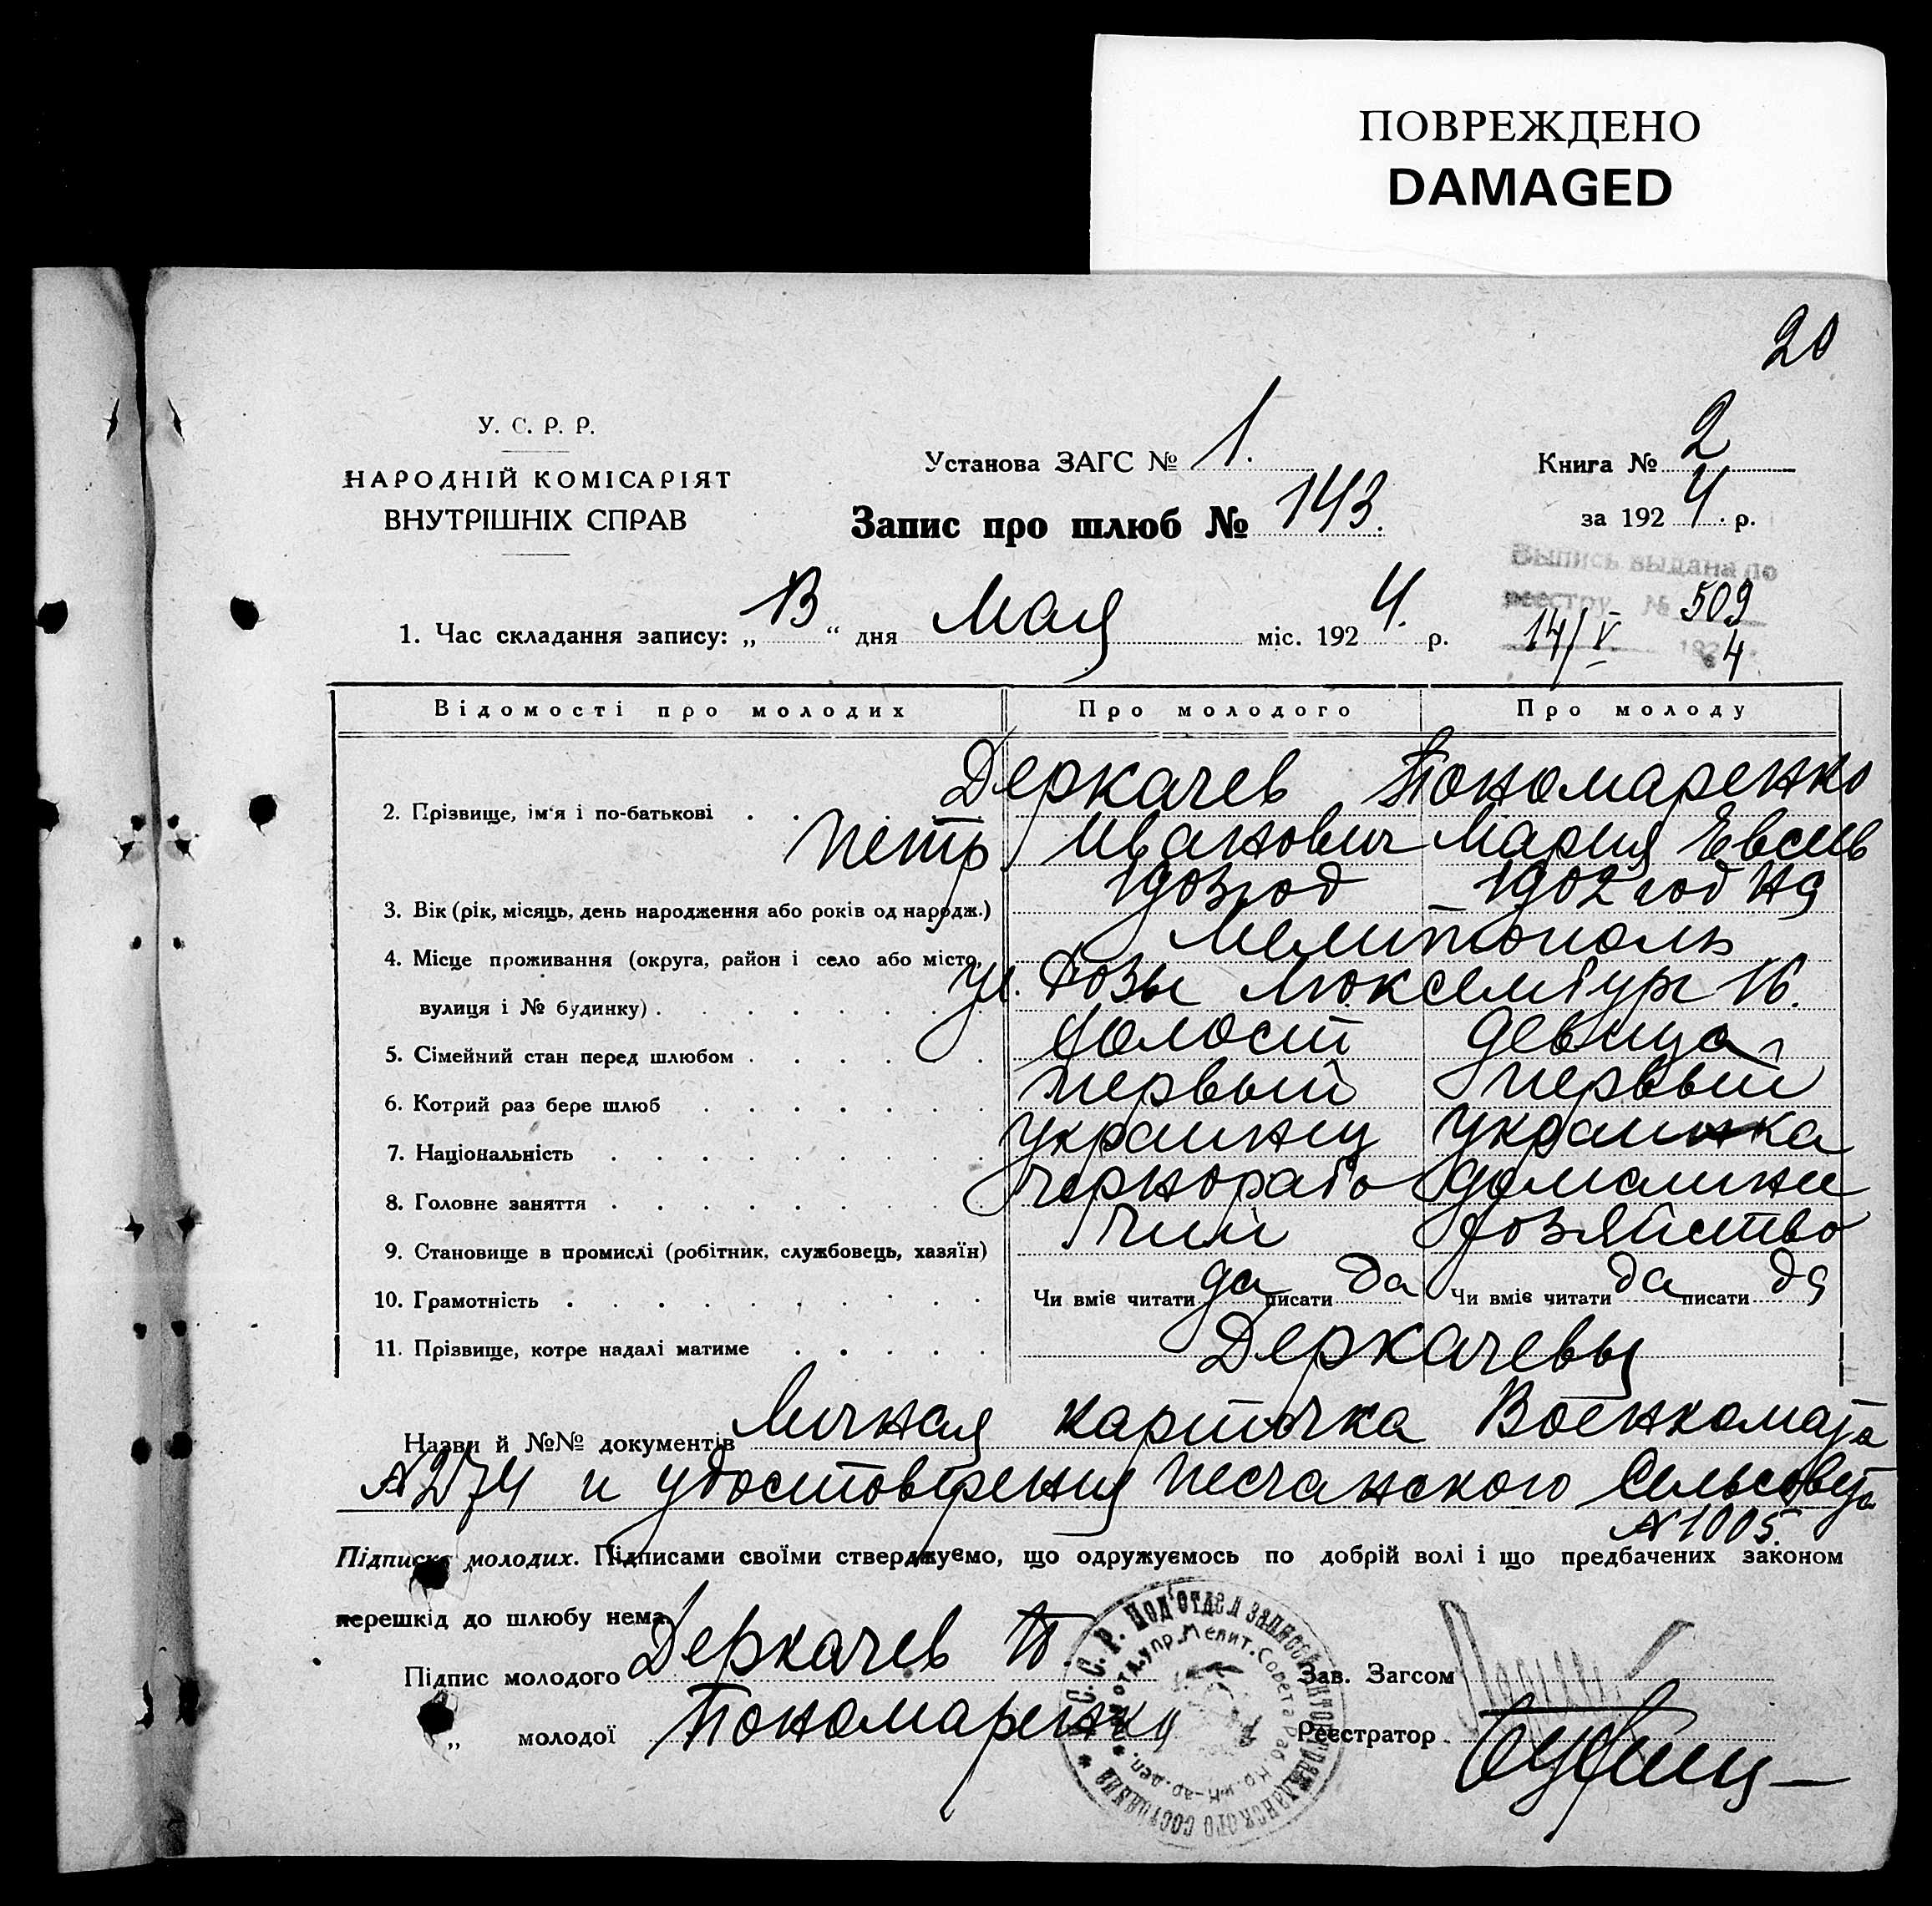 ПОВРЕЖДЕНО
DAMAGED
20
У. С. Р. Р.
НАРОДНІЙ КОМІСАРІЯТ
ВНУТРІШНІХ СПРАВ
Установа ЗАГС № 1.
Запис про шлюб № 143.
Книга № 2
за 1924 р.
Выпись выдана по
реестру № 509
14/V 1924
1. Час складання запису: „13“ дня Мая міс. 1924. р.
Відомості про молодих Про молодого Про молоду
2. Прізвище, ім'я і по-батькові Деркачев Пономаренко
Петр Иванович Мария Евсеев
3. Вік (рік, місяць, день народження або років од народж.) 1903 год 1902 год на
4. Місце проживання (округа, район і село або місто, Мелитополь
вулиця і № будинку) ул. Розы Люксембург 16.
5. Сімейний стан перед шлюбом холост девица
6. Котрий раз бере шлюб первый первый
7. Національність украинец украинка
8. Головне заняття чернорабо домашнее
9. Становище в промислі (робітник, службовець, хазяїн) чий хозяйство
10. Грамотність Чи вміє читати да писати да Чи вміє читати да писати да
11. Прізвище, котре надалі матиме Деркачевы
Назви й №№ документів Личная карточка Военкомата
№ 274 и удостоверения Песчанского Сельсовета
№ 1005.
Підписка молодих. Підписами своїми стверджуємо, що одружуємось по добрій волі і що предбачених законом
перешкід до шлюбу нема.
Підпис молодого Деркачев П. Зав. Загсом
„ молодої Пономаренко Реєстратор
С. С. Р. Под'отдел записей гражданского состояния
отд. упр. Мелит. Совета Раб. Кр. и Кр-ар. деп.